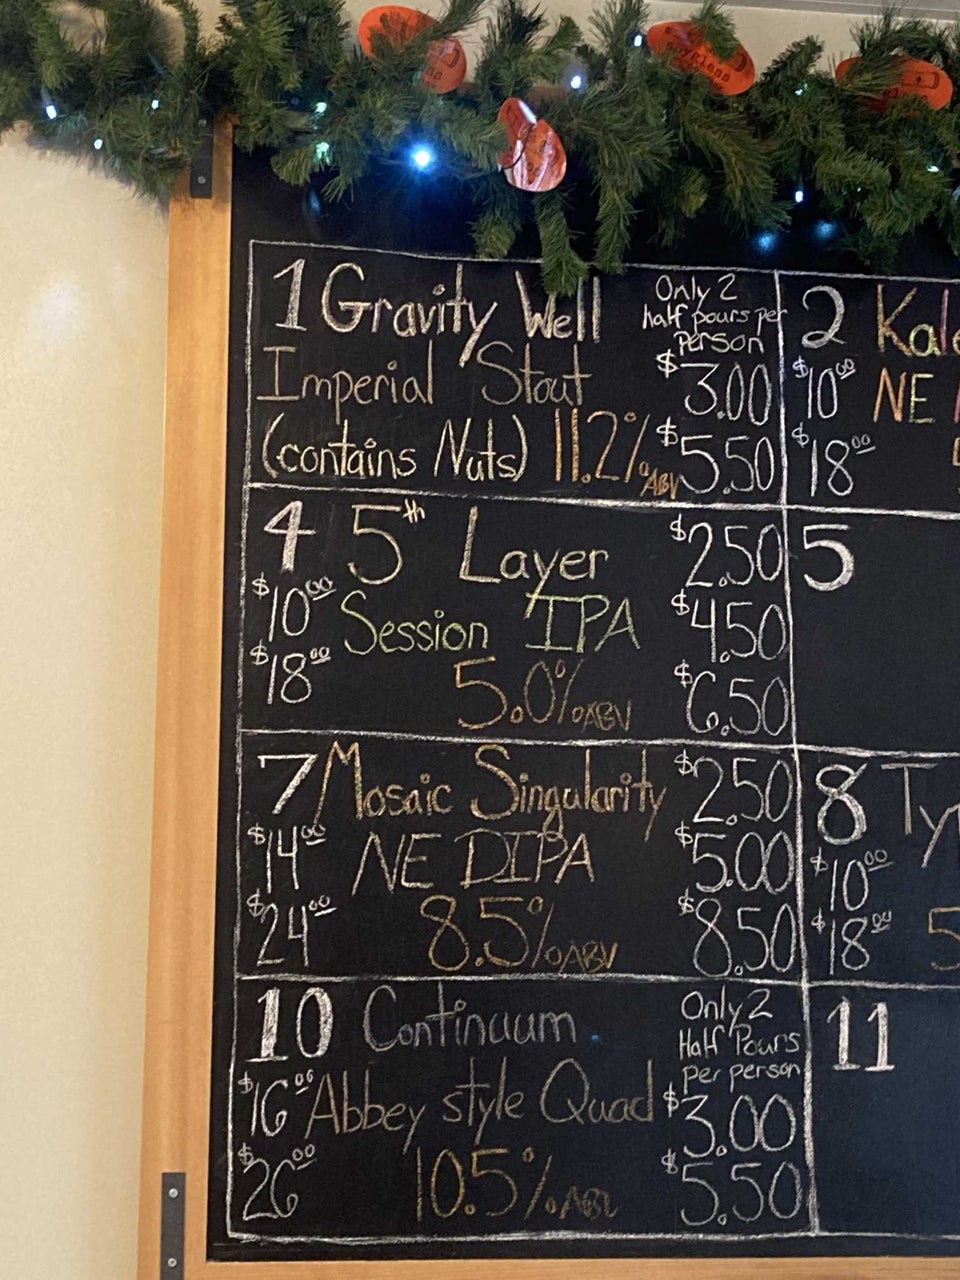 1 Gravity Well
Only 2
half pours per
person
Imperial Stout
$3.00
(contains Nuts) 11.2% ABV
$5.50
2
$10.00 NE
$18.00
4 5th Layer
$2.50
$10.00 Session IPA
$4.50
$18.00
5.0% ABV
$6.50
5
7 Mosaic Singularity
$2.50
$14.00 NE DIPA
$5.00
$24.00 8.5% ABV
$8.50
8
$10.00
$18.00 5
10 Continuum
Only 2
Half Pours
per person
$16.00 Abbey style Quad
$3.00
$26.00 10.5% ABV
$5.50
11